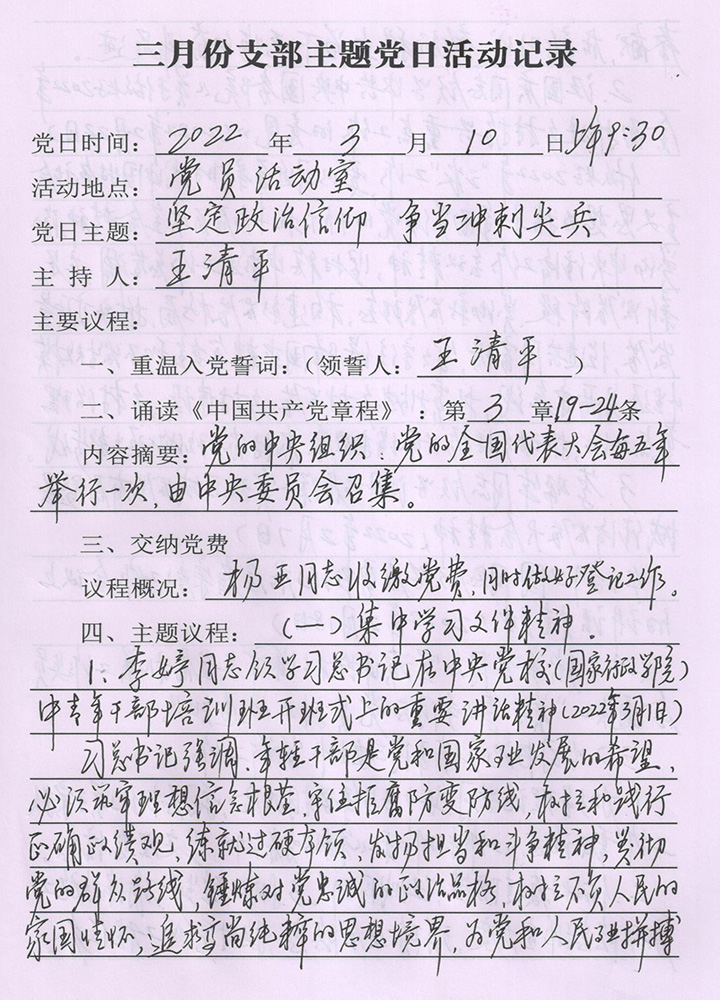 三月份支部主题党日活动记录
党日时间：2022 年 3 月 10 日上午9:30
活动地点：党员活动室
党日主题：坚定政治信仰 争当冲刺尖兵
主 持 人：王清平
主要议程：
一、重温入党誓词：（领誓人：王清平）
二、诵读《中国共产党章程》：第 3 章19-24条
内容摘要：党的中央组织：党的全国代表大会每五年
举行一次，由中央委员会召集。
三、交纳党费
议程概况：杨亚同志收缴党费，同时做好登记工作。
四、主题议程：（一）集中学习文件精神。
1、李婷同志领学习总书记在中央党校（国家行政学院）
中青年干部培训班开班式上的重要讲话精神（2022年3月1日）
习总书记强调，年轻干部是党和国家事业发展的希望，
必须筑牢理想信念根基，守住拒腐防变防线，树立和践行
正确政绩观，练就过硬本领，发扬担当和斗争精神，贯彻
党的群众路线，锤炼对党忠诚的政治品格，树立不负人民的
家国情怀，追求高尚纯粹的思想境界，为党和人民事业拼搏